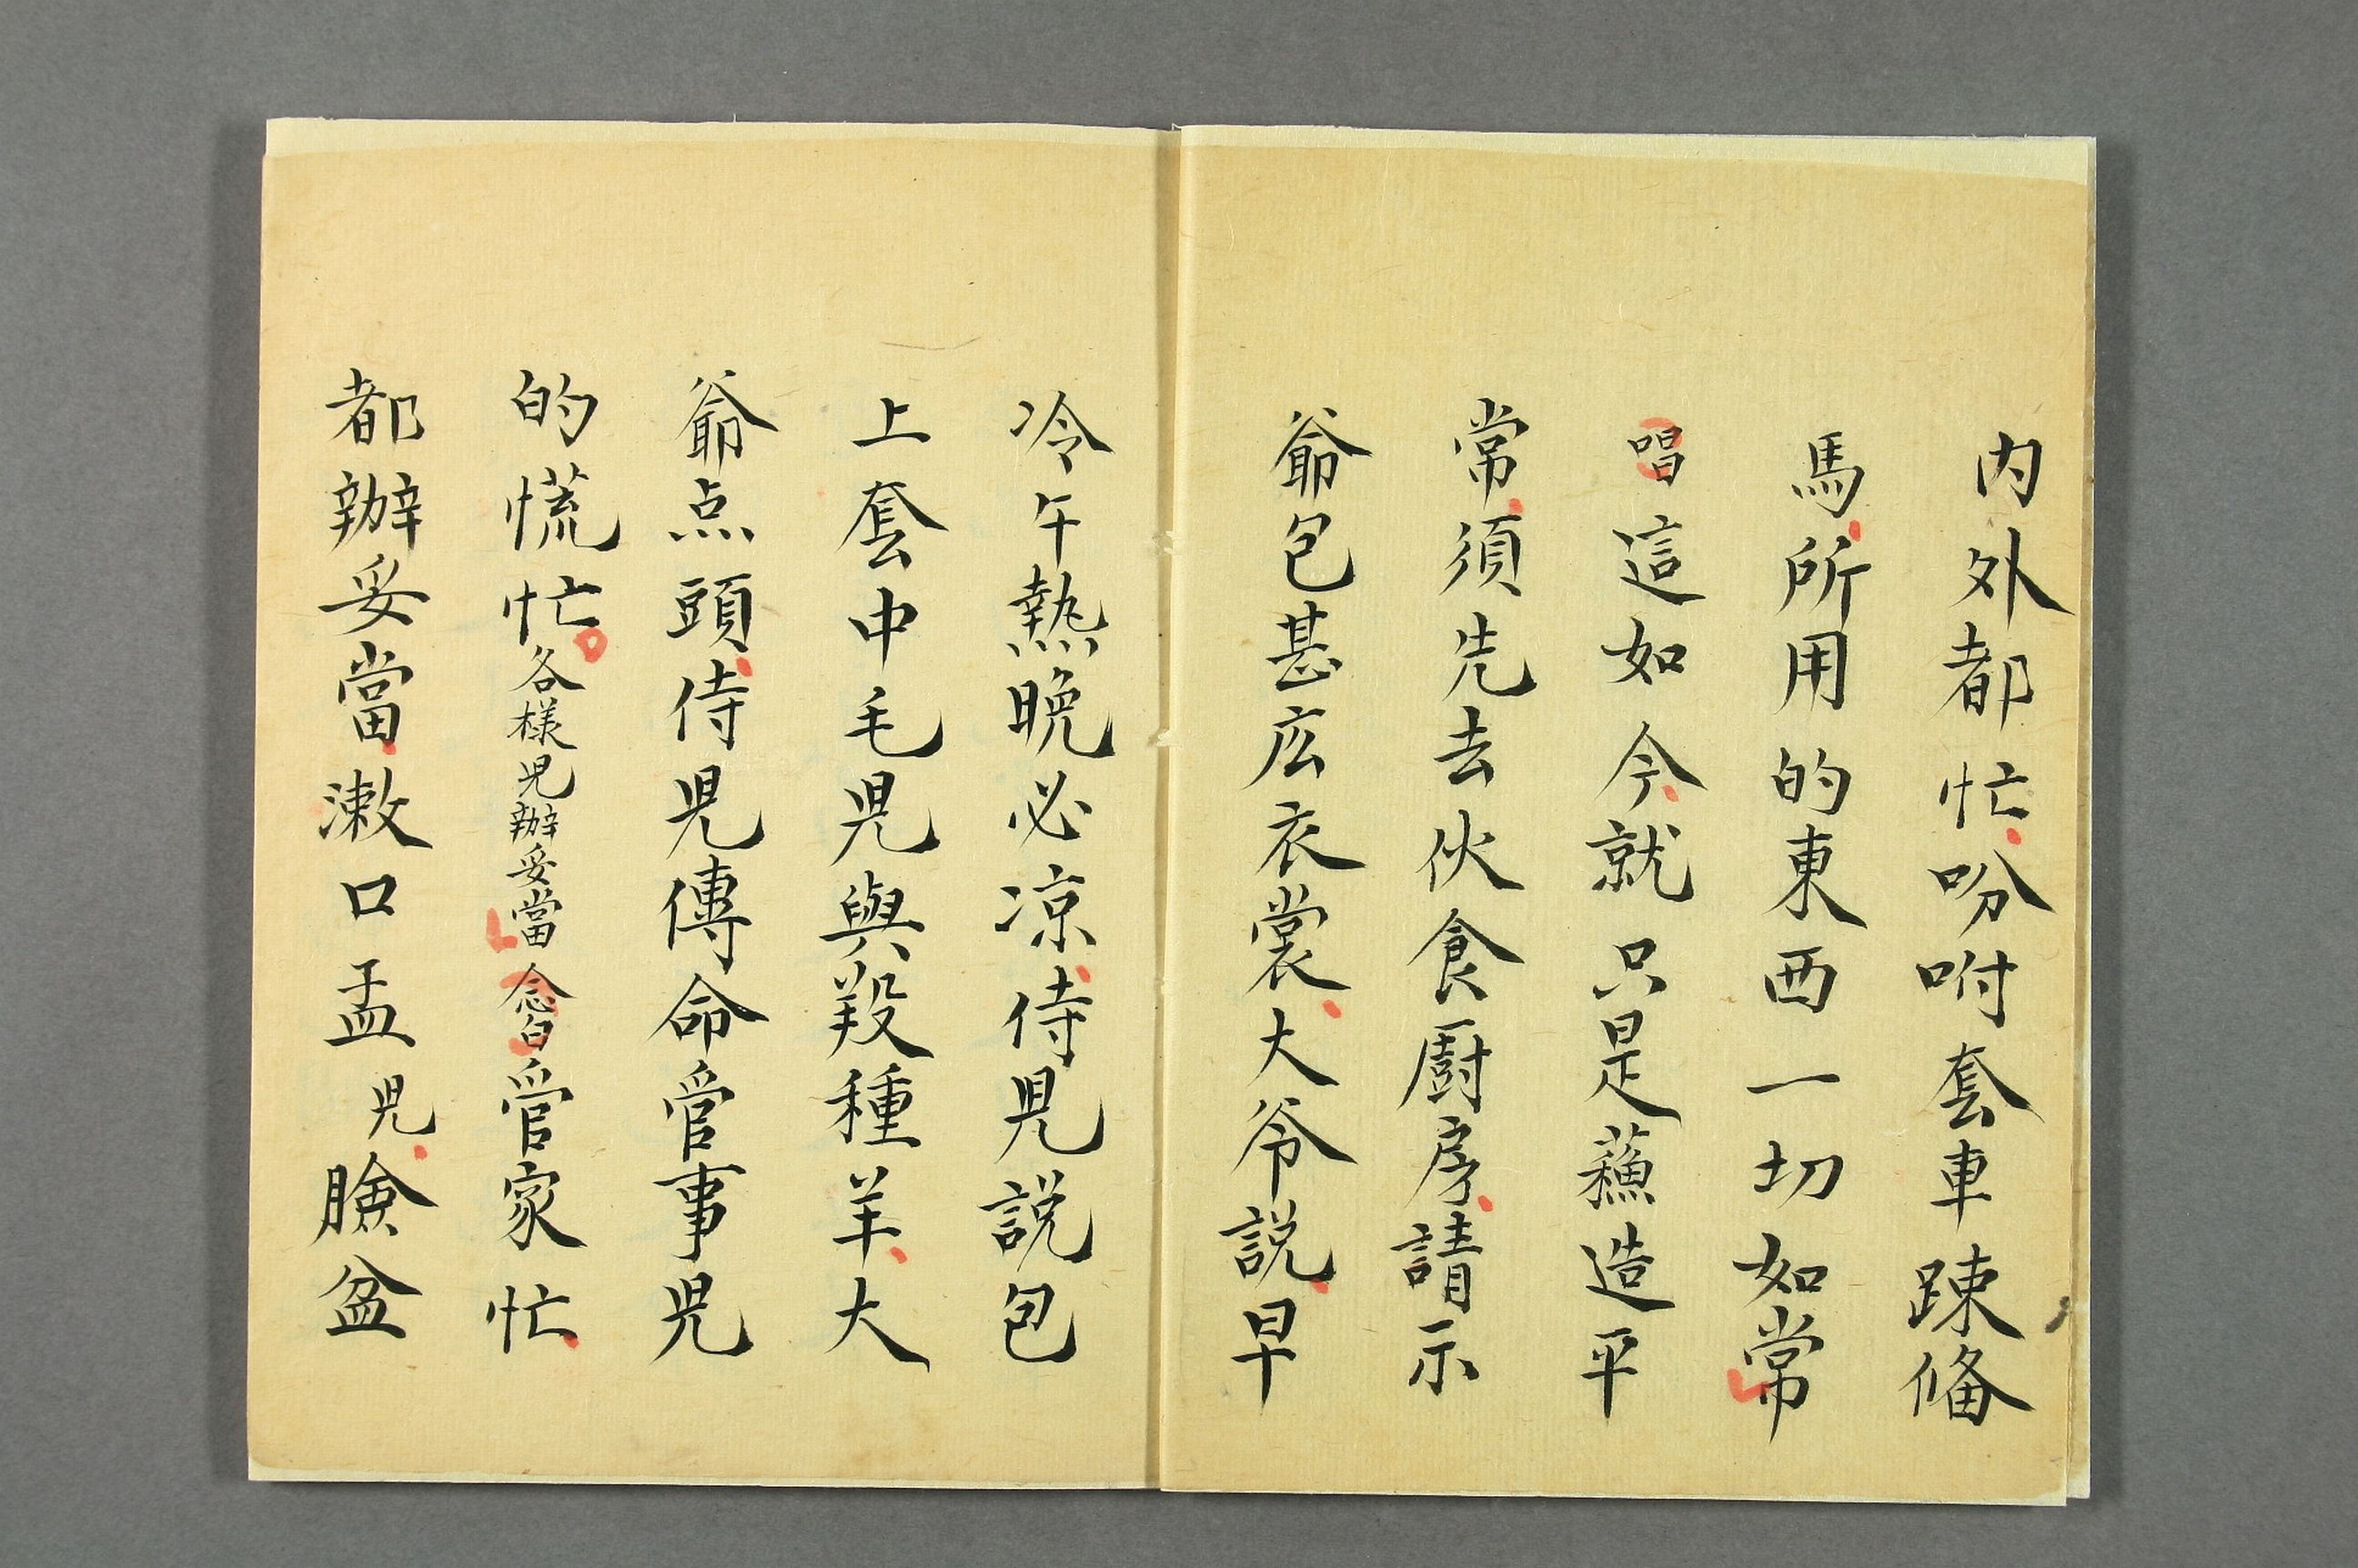 内外都忙吩咐套車踈俻
馬所用的東西一切如常
唱這如今就只是蘓造平
常須先去伙食厨房請示
爺包甚庅衣裳大爷説早
冷午熱晩必凉侍児説包
上套中毛児與羖種羊大
爺点頭侍児傳命管事児
的慌忙各様児辦妥當念白管家忙
都辦妥當漱口盂児臉盆